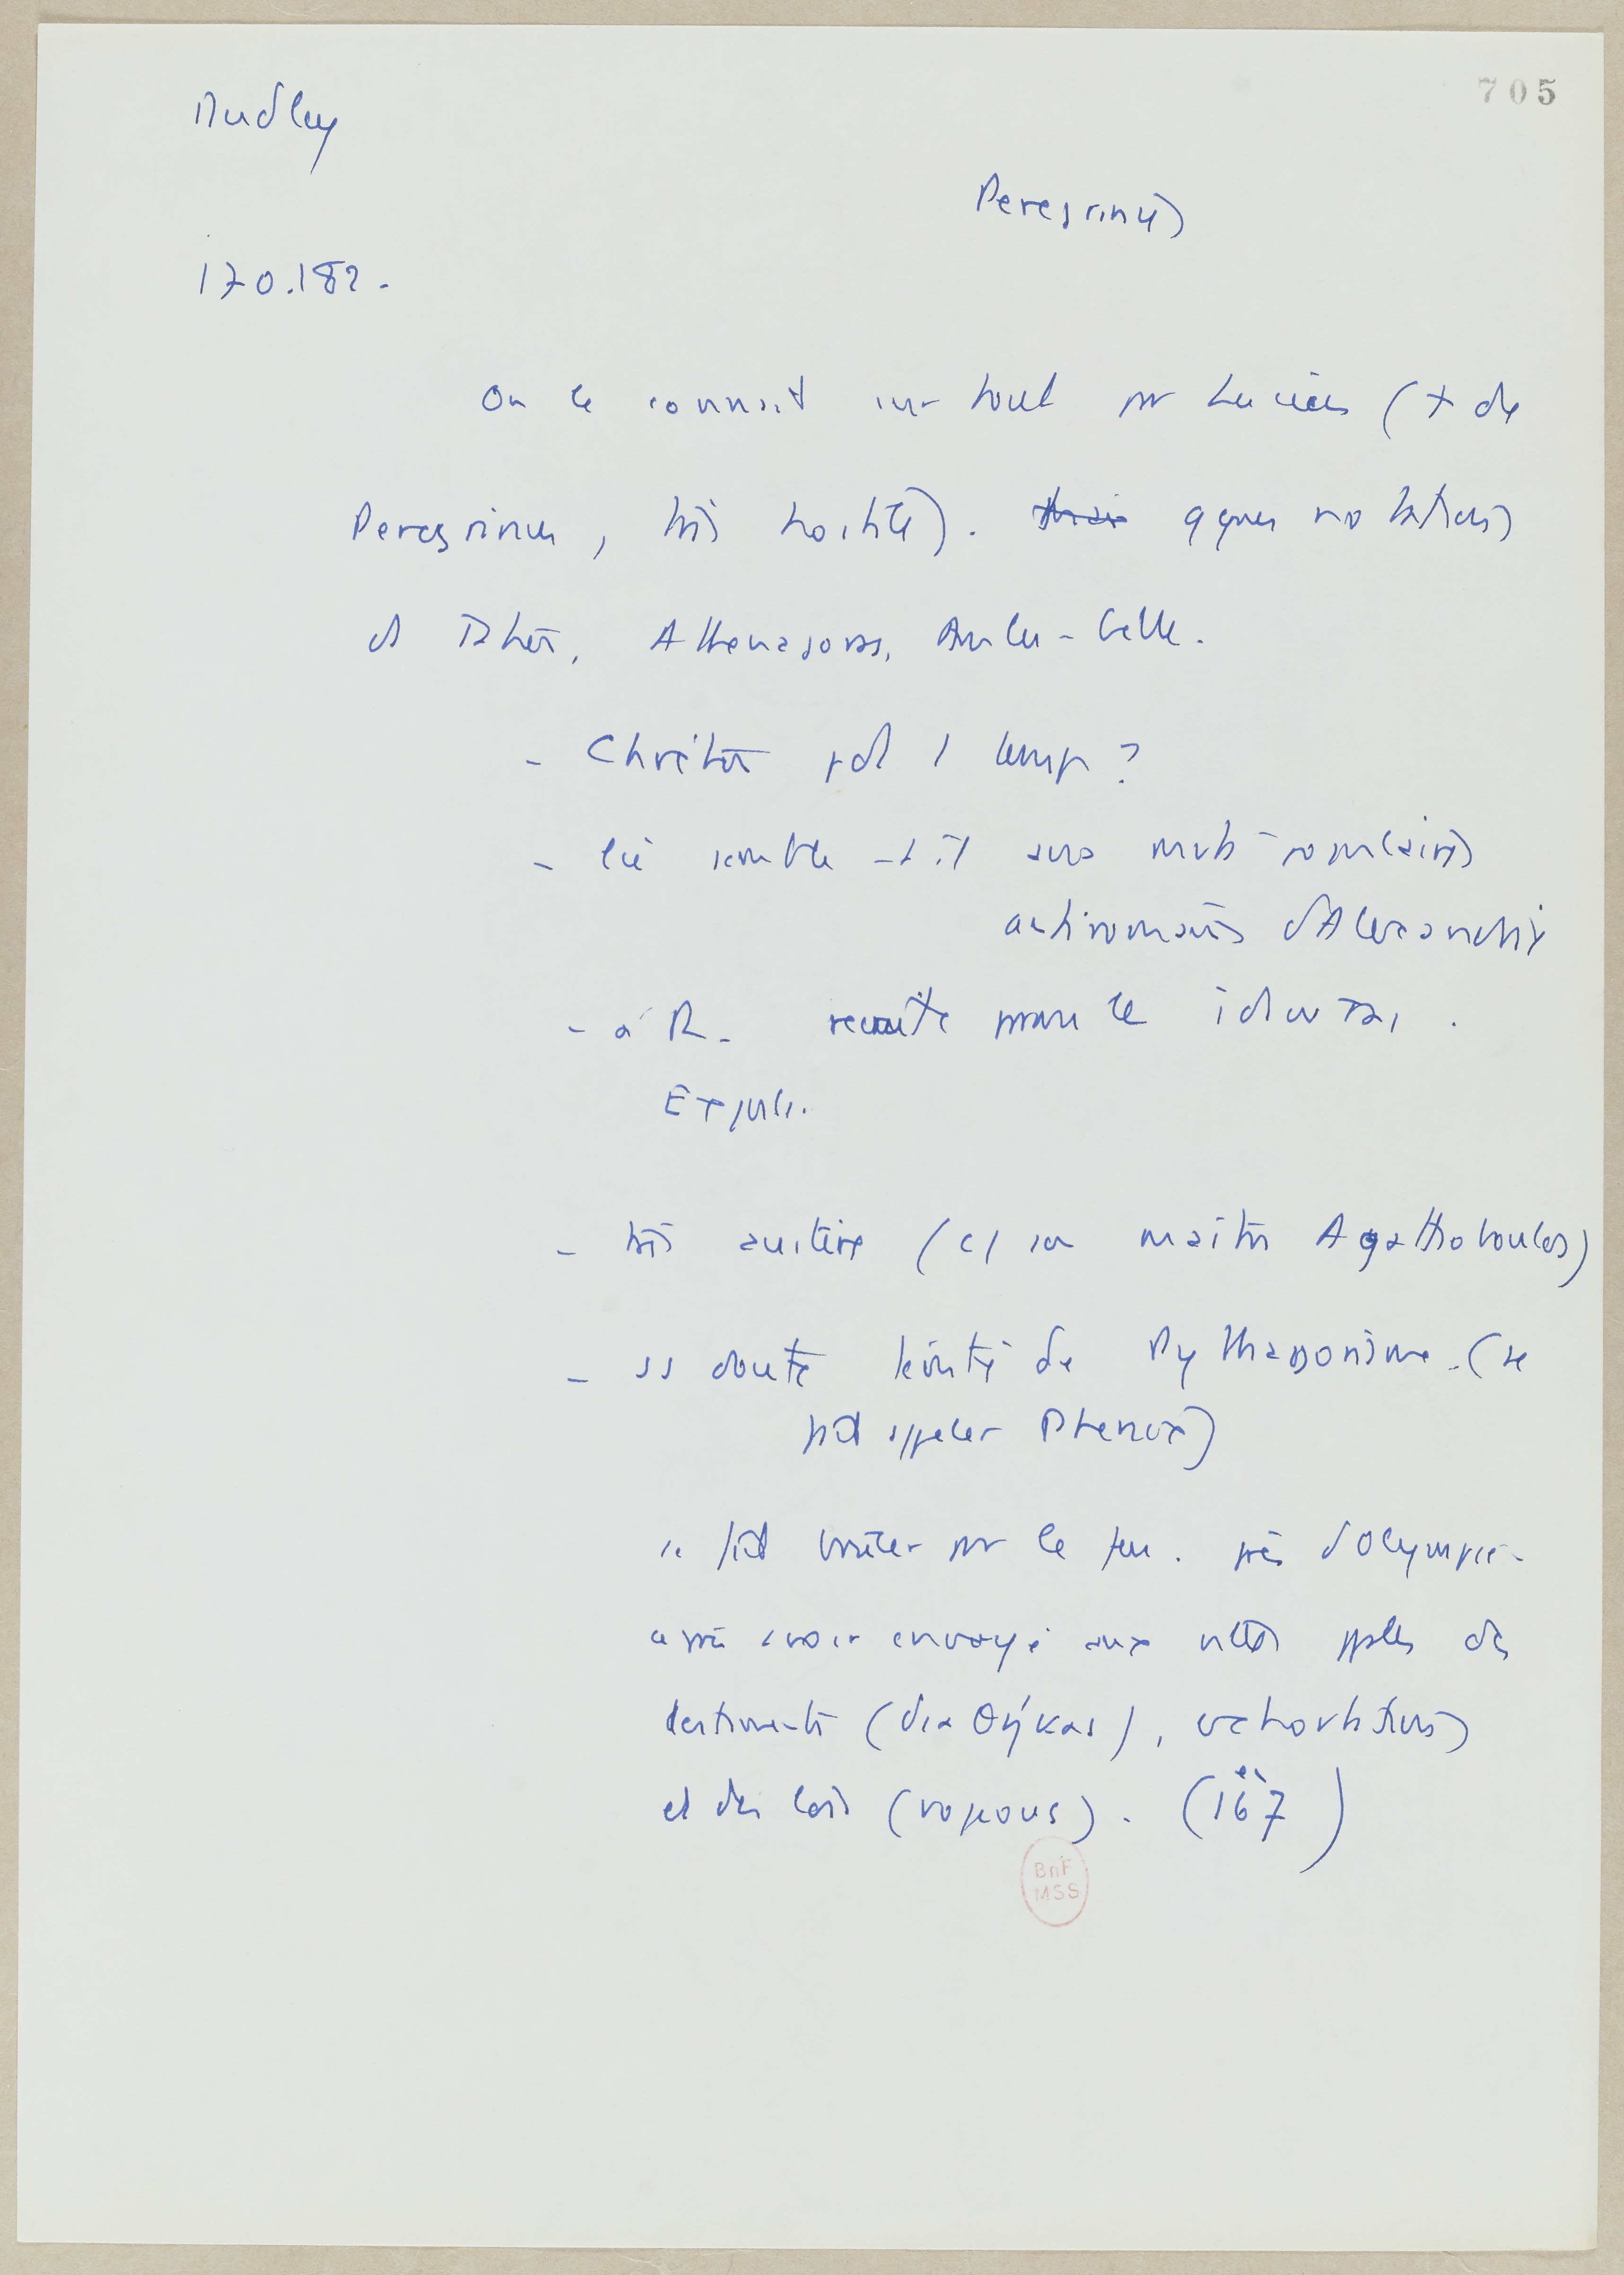 Dudley
705
Peregrinus
170.182.
On le connait surtout par Lucien (+ de
Peregrinus, très hostile). qques notations
ds Tatien, Athenagoras, Aulu-Gelle.
- Chrétien pdt 1 temps ?
- lié semble-t-il aux mvts populaires
antiromains d'Alexandrie
- à R. recrute parmi le
Expuls.
- très austère (cf son maître Agathoboulos)
- ss doute teinté de Pythagorisme. (se
fait appeler Phenix)
se fait brûler par le feu. près d'Olympie.
après avoir envoyé aux villes pples des
testaments (διαθήκας), exhortations
et des lois (νομους). (167)
BnF
MSS